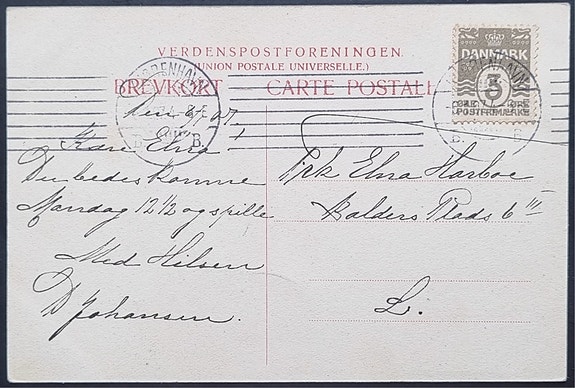 VERDENSPOSTFORENINGEN.
(UNION POSTALE UNIVERSELLE.)
BREVKORT
CARTE POSTALE
KJØBENHAVN
B.
DANMARK
3
POSTFRIMÆRKE
B.
Kære Elna!
Du bedes komme
Mandag 12½ og spille
Med Hilsen
D Johansen.
Frk Elna Harboe
Balders Plads 6 III
L.